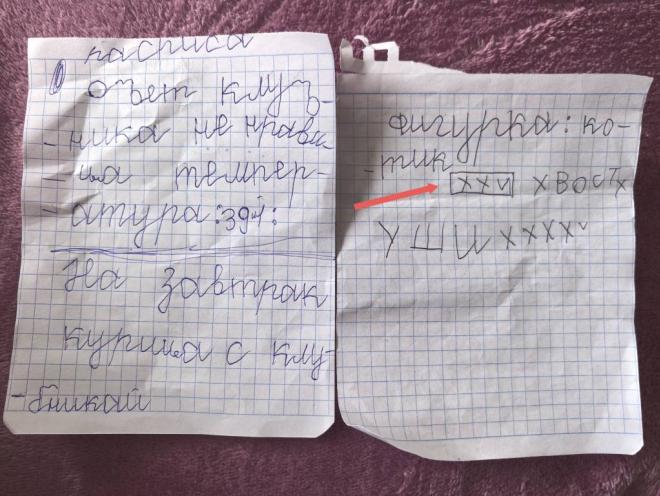 объет клуб-
-ника не нрави
-ца темпер-
-атура:39ч:
На завтрак
курица с клу-
-бникай
фигурка: ко-
-тик
ххи хвостх
УШИ ххххи